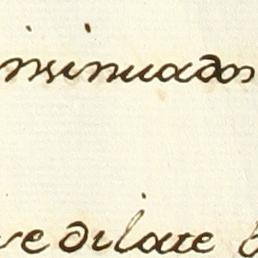 insinuados
se dilate